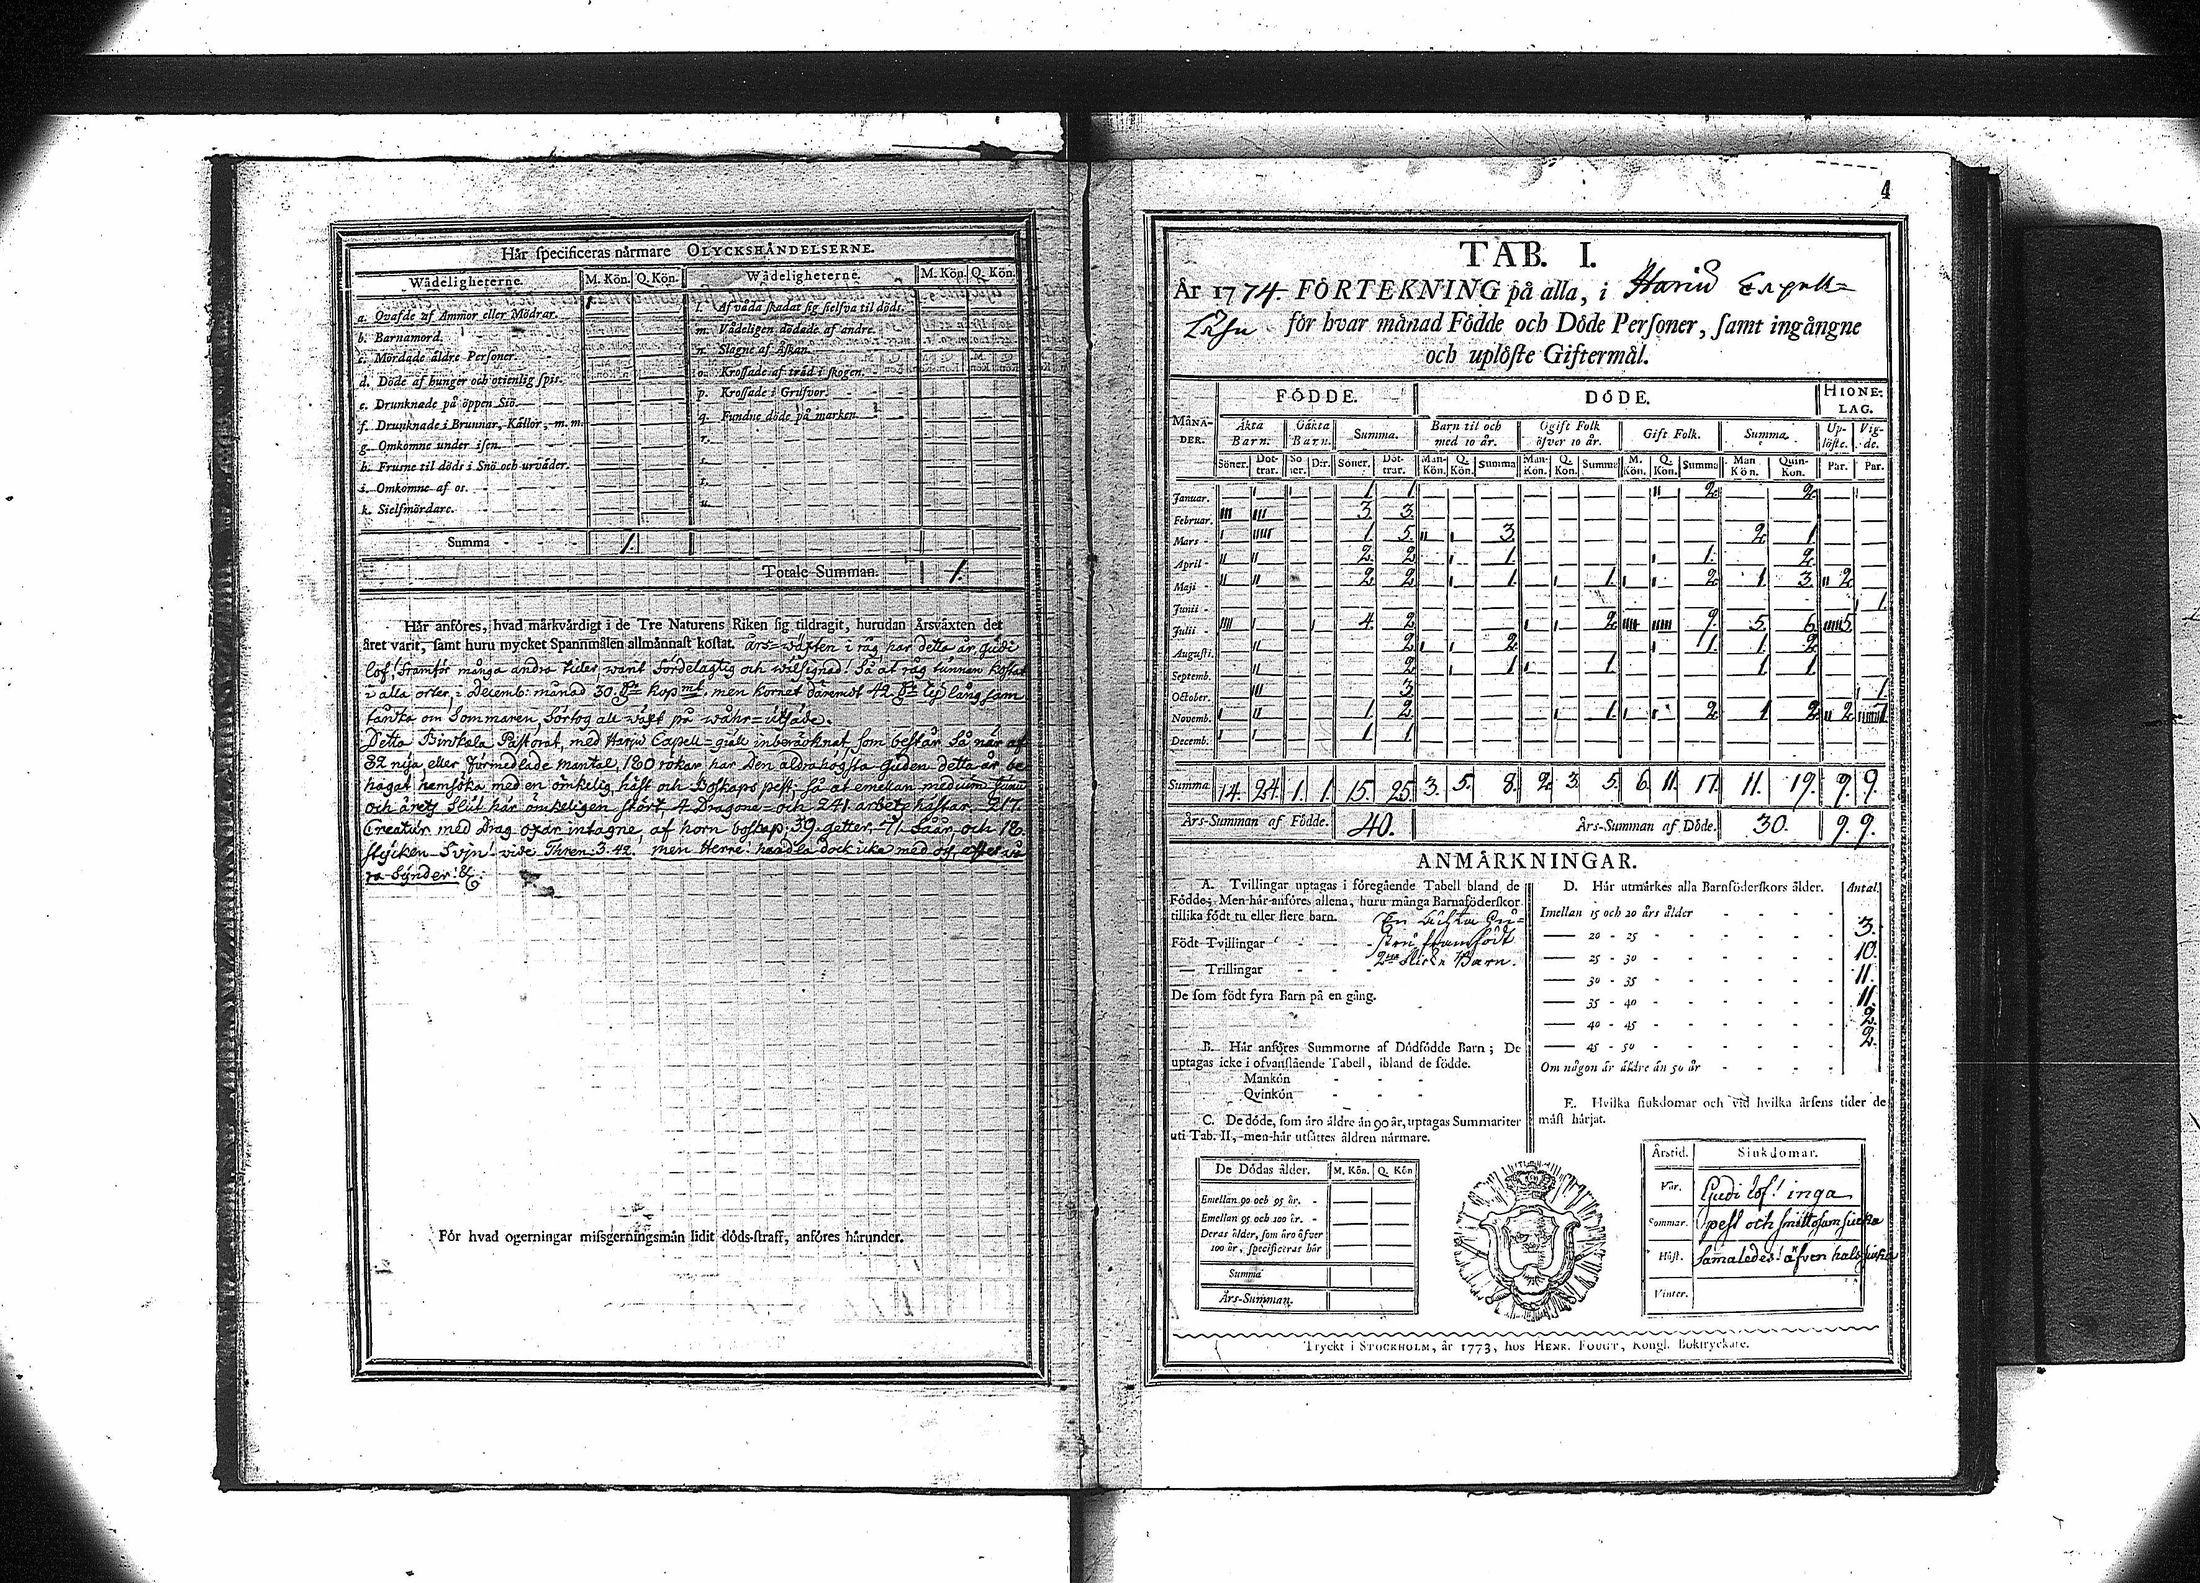 Här specificeras närmare OLYCKSHÄNDELSERNE.
Wådeligheterne. M. Kön. Q. Kön. Wådeligheterne. M. Kön. Q. Kön.
a. Qvafde af Ammor eller Mödrar. 1 l. Af våda skadat sig sielfva til döds.
b. Barnamord. m. Vådeligen dödade af andre.
c. Mördade äldre Personer. n. Slagne af Åskan.
d. Döde af hunger och otienlig spis. o. Krossade af träd i skogen.
e. Drunknade på öppen Siö. p. Krossade i Grufvor.
f. Drunknade i Brunnar, Källor, m. m. q. Fundne döde på marken.
g. Omkomne under isen. r.
h. Frusne til döds i Snö och urväder. s.
i. Omkomne af os. t.
k. Sielfmördare. u.
Summa 1.
Totale Summan. 1.
Här anföres, hvad märkvärdigt i de Tre Naturens Riken sig tildragit, hurudan Årsväxten det
året varit, samt huru mycket Spannmålen allmännast kostat. års-wäxten i råg har detta år, Gudi
lof, framför många andra tider, warit fördelagtig och wälsignad! så at råg tunnan kostat
i alla orter, i Decemb: månad 30. kopmt. men kornet däremot 42. långsam
om Sommaren, förtog all wäxt på wåhr-utsäde.
Detta Birkala Pastorat, med Harju Capell-gäll inberäknat, som består så när af
32 nya, eller förmedlade mantal, 180 rökar har Den aldrahögsta Guden detta år be
hagat hemsöka med en ömkelig häst och Boskaps pest; så at emellan medium Junii
och årets slut här ömkeligen stört, 4 Dragone- och 241 arbets hästar. 217.
Creatur med Drag oxar intagne, af horn boskap; 39 getter, 71. Fåår och 120.
stycken Svijn! vide Thren. 3. 42. men Herre! handla dock icke med oss, efter wå
ra Synder! &c.
För hvad ogerningar missgerningsmän lidit döds-straff, anföres härunder.
4
TAB. I.
År 1774. FÖRTEKNING på alla, i Harju Capell=
för hvar månad Födde och Döde Personer, samt ingångne
och uplöste Giftermål.
FÖDDE. DÖDE. HIONE-LAG.
MÅNA-DER. Äkta Barn. Oäkta Barn. Summa. Barn til och med 10 år. Ogift Folk öfver 10 år. Gift Folk. Summa. Up-löste. Vig-de.
Söner. Döt-trar. Sö-ner. D:r. Söner. Döt-trar. Man-Kön. Q. Kön. Summa Man-Kön. Q. Kön. Summa M. Kön. Q. Kön. Summa Man Kön. Quin-Kön. Par. Par.
Januar. 1 1 2 2
Februar. 3 3
Mars 1 5 3 2 1
April 2 2 1 1 2
Maji 2 2 1 1 2 1 3 2
Junii 1
Julii 4 2 2 9 5 6 5
Augusti. 2 2 1 1 2
Septemb. 2 1 1 1 1
October. 3 1
Novemb. 1 2 1 2 1 2 2
Decemb. 1 1
Summa 14. 24. 1. 1. 15. 25. 3. 5. 8. 2. 3. 5. 6. 11. 17. 11. 19. 9. 9.
Års-Summan af Födde. 40. Års-Summan af Döde. 30. 9. 9.
ANMÄRKNINGAR.
A. Tvillingar uptagas i föregående Tabell bland de
Födde; Men här anföres allena, huru många Barnaföderskor
tillika födt tu eller flere barn.
Födt Tvillingar
framfödt
— Trillingar Barn.
De som födt fyra Barn på en gång.
B. Här anföres Summorne af Dödfödde Barn; De
uptagas icke i ofvanstående Tabell, ibland de födde.
Mankön
Qvinkön
C. De döde, som äro äldre än 90 år, uptagas Summariter
uti Tab. II, men här utsättes åldren närmare.
De Dödas ålder. M. Kön. Q. Kön
Emellan 90 och 95 år.
Emellan 95 och 100 år.
Deras ålder, som äro öfver
100 år, specificeras här
Summa
Års-Summan.
D. Här utmärkes alla Barnföderskors ålder. Antal.
Imellan 15 och 20 års ålder 3.
— 20 - 25 10.
— 25 - 30 11.
— 30 - 35 11.
— 35 - 40 2.
— 40 - 45 2.
— 45 - 50
Om någon är äldre än 50 år
E. Hvilka siukdomar och vid hvilka årsens tider de
mäst härjat.
Årstid. Siukdomar.
Vår. Gudi lof! inga
Sommar. pest och smittosam siuka
Höst. Samaledes! äfven hals siuka
Vinter.
Tryckt i STOCKHOLM, år 1773, hos HENR. FOUGT, Kongl. Boktryckare.